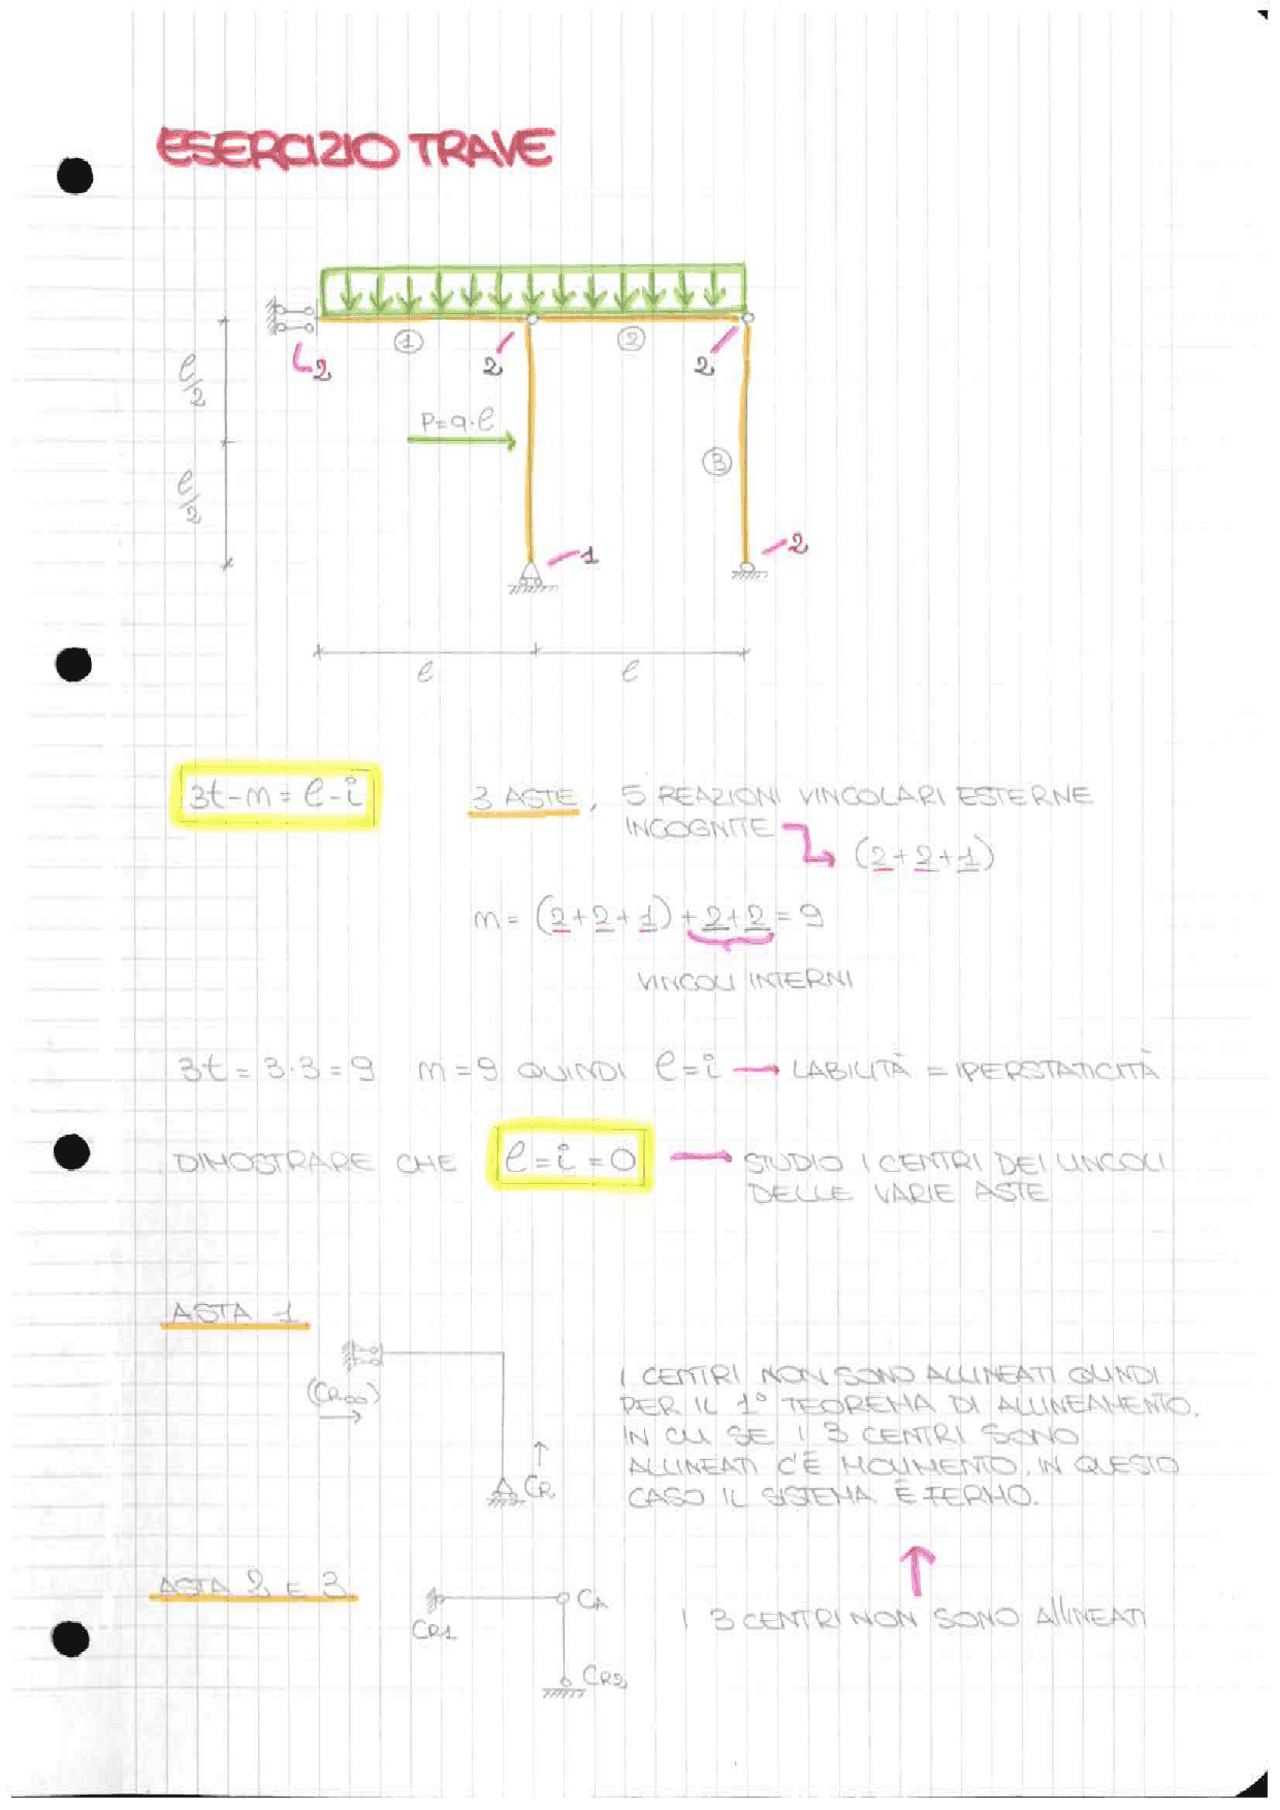 ESERCIZIO TRAVE
1
2
2
2
2
l/2
P=q·l
3
l/2
1
2
l
l
3t-m=l-i
3 ASTE, 5 REAZIONI VINCOLARI ESTERNE
INCOGNITE
(2+2+1)
m=(2+2+1)+2+2=9
VINCOLI INTERNI
3t=3·3=9 m=9 QUINDI l=i → LABILITÀ = IPERSTATICITÀ
DIMOSTRARE CHE l=i=0 → STUDIO I CENTRI DEI VINCOLI
DELLE VARIE ASTE
ASTA 1
(CR∞)
CR
I CENTRI NON SONO ALLINEATI QUINDI
PER IL 1° TEOREMA DI ALLINEAMENTO,
IN CUI SE I 3 CENTRI SONO
ALLINEATI C'È MOVIMENTO, IN QUESTO
CASO IL SISTEMA È FERMO.
ASTA 2 E 3
CR1
CA
CR2
I 3 CENTRI NON SONO AllINEATI